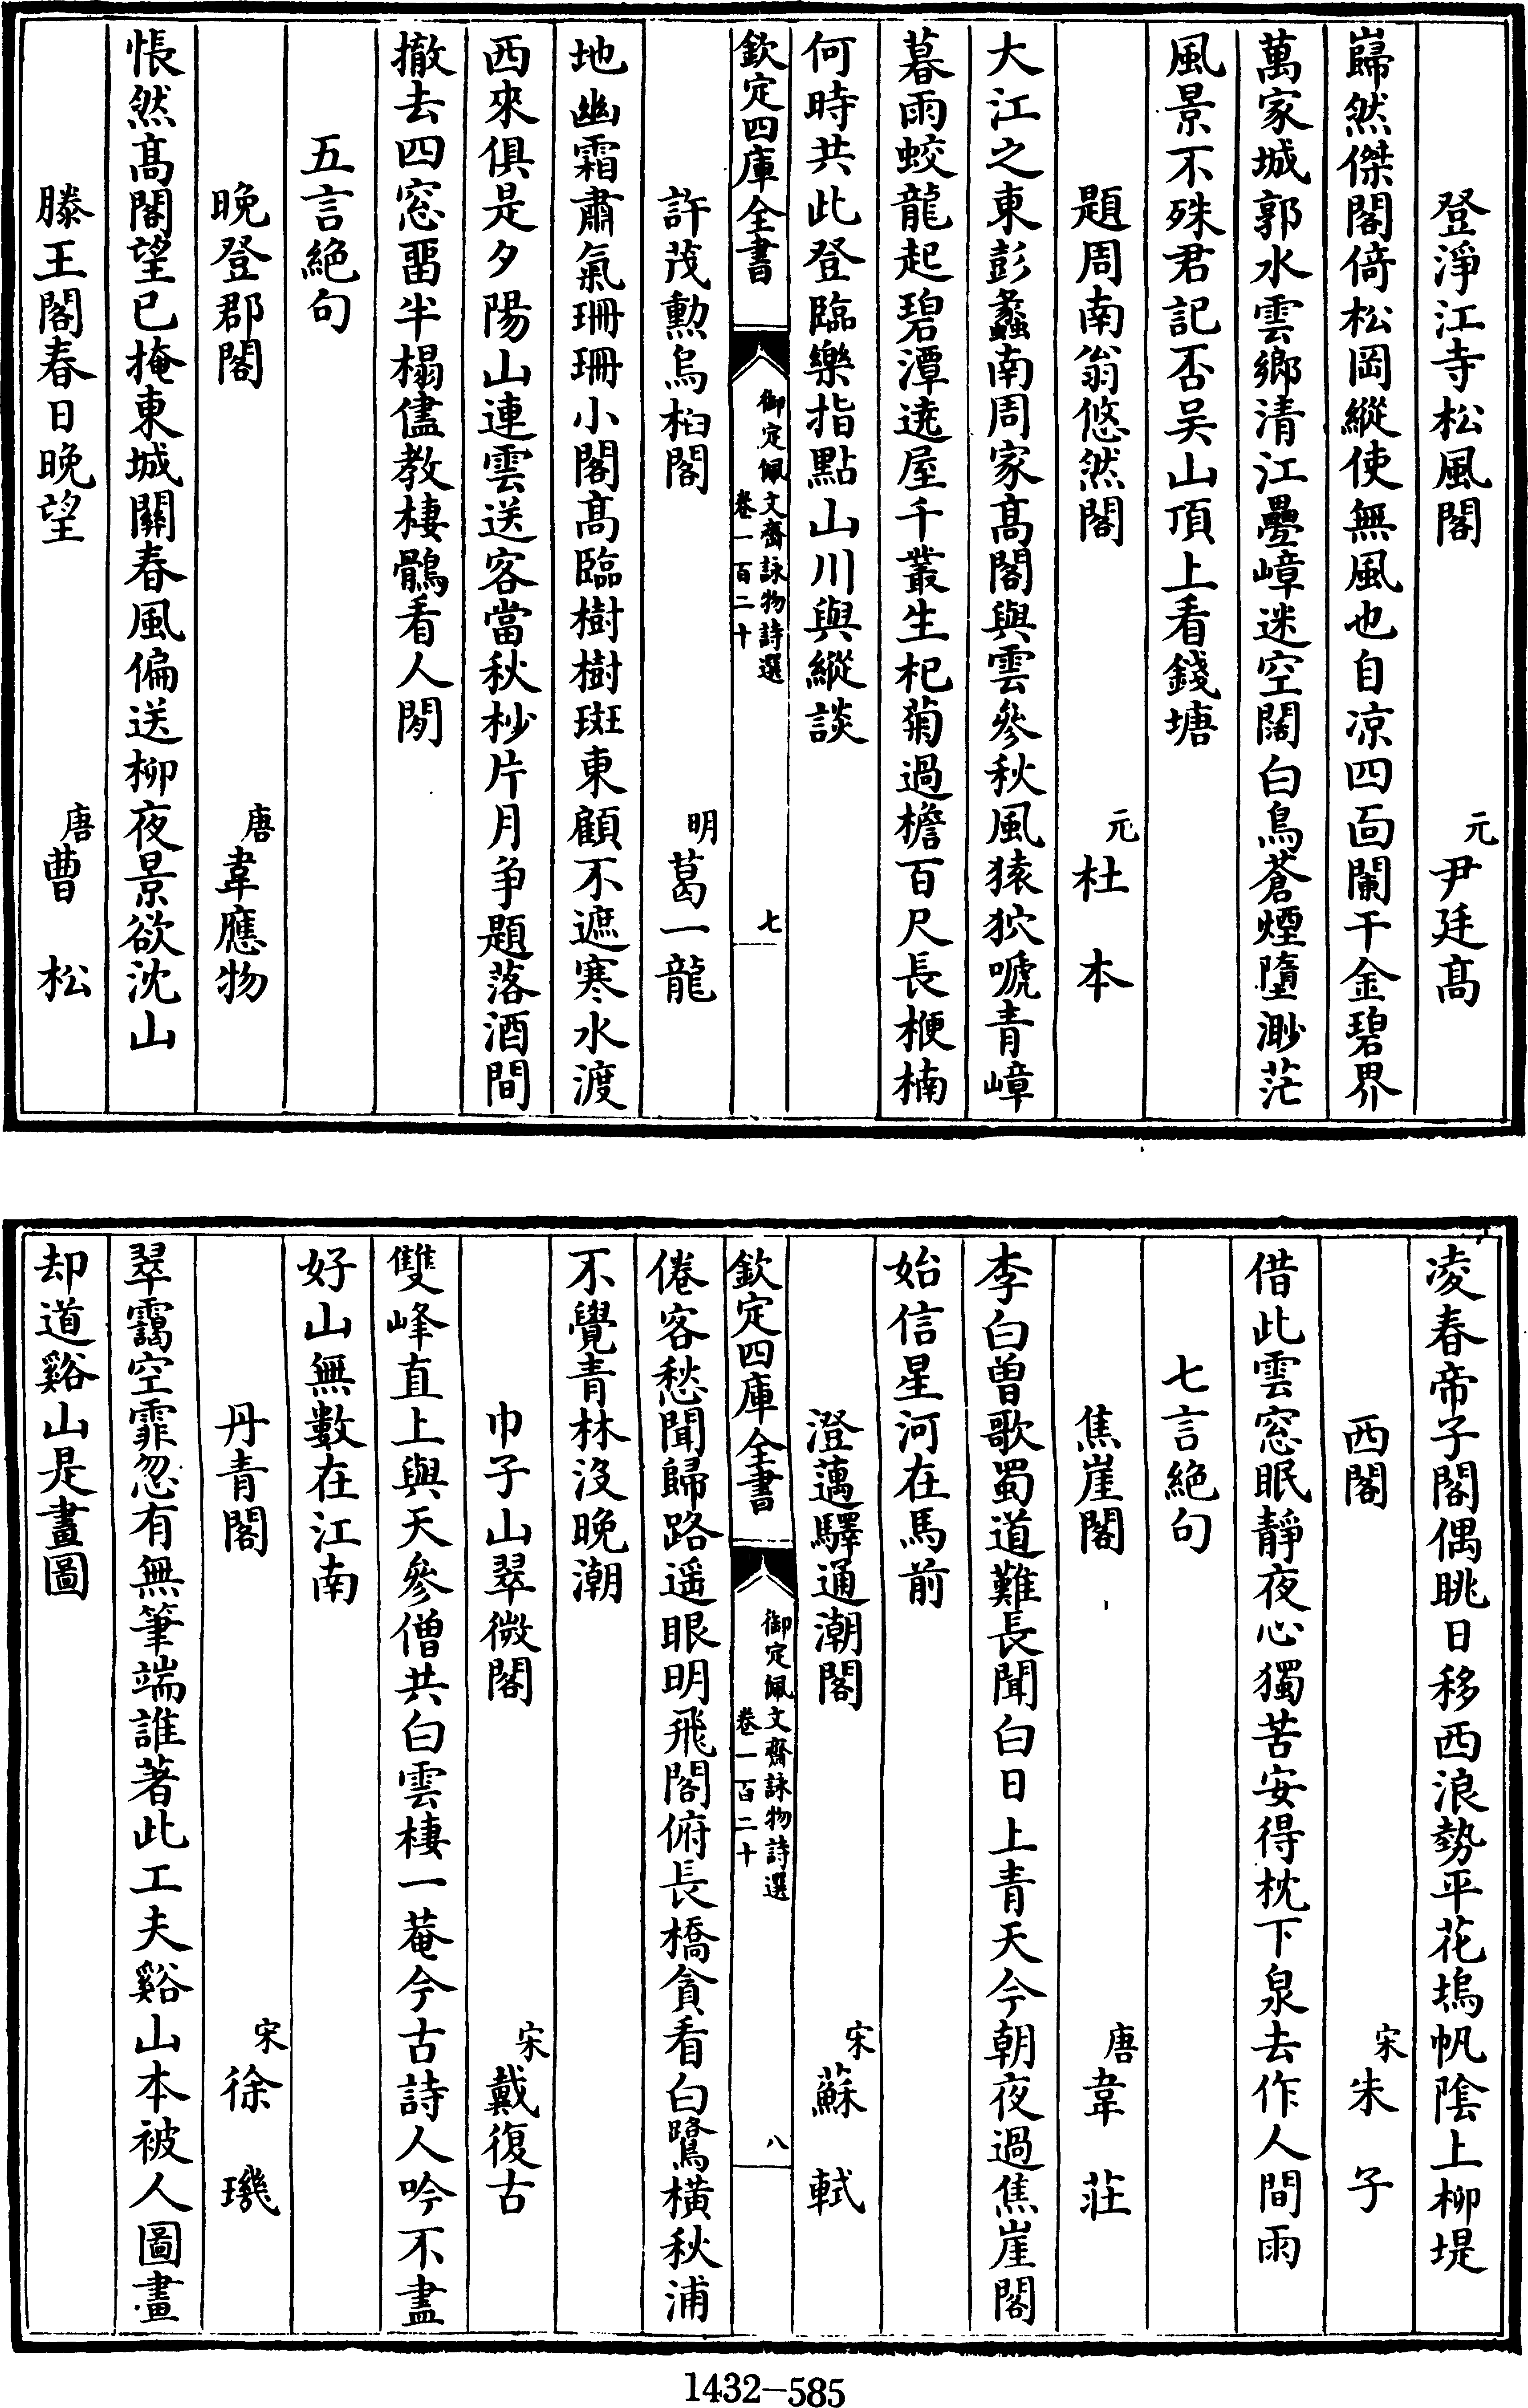 登淨江寺松風閣 元尹廷髙
巋然傑閣倚松岡縱使無風也自凉四面闌干金碧界
萬家城郭水雲鄉清江疊嶂迷空闊白鳥蒼煙墮渺茫
風景不殊君記否吴山頂上看錢塘
題周南翁悠然閣 元杜本
大江之東彭蠡南周家髙閣與雲參秋風猿狖嗁青嶂
暮雨蛟龍起碧潭遶屋千叢生杞菊過檐百尺長楩楠
何時共此登臨樂指點山川與縱談
欽定四庫全書 御定佩文齋詠物詩選 卷一百二十 七
許茂勲烏桕閣 明葛一龍
地幽霜肅氣珊珊小閣髙臨樹樹斑東顧不遮寒水渡
西來俱是夕陽山連雲送客當秋杪片月争題落酒間
撤去四窓畱半榻儘教棲鶻看人閒
五言絶句
晚登郡閣 唐韋應物
悵然髙閣望已掩東城關春風偏送柳夜景欲沈山
滕王閣春日晚望 唐曹松
凌春帝子閣偶眺日移西浪勢平花塢帆陰上柳堤
西閣 宋朱子
借此雲窓眠靜夜心獨苦安得枕下泉去作人間雨
七言絶句
焦崖閣 唐韋莊
李白曽歌蜀道難長聞白日上青天今朝夜過焦崖閣
始信星河在馬前
澄邁驛通潮閣 宋蘇軾
欽定四庫全書 御定佩文齋詠物詩選 卷一百二十 八
倦客愁聞歸路遥眼明飛閣俯長橋貪看白鷺橫秋浦
不覺青林沒晚潮
巾子山翠微閣 宋戴復古
雙峰直上與天參僧共白雲棲一菴今古詩人吟不盡
好山無數在江南
丹青閣 宋徐璣
翠靄空霏忽有無筆端誰著此工夫谿山本被人圖畫
却道谿山是畫圖
1432-585